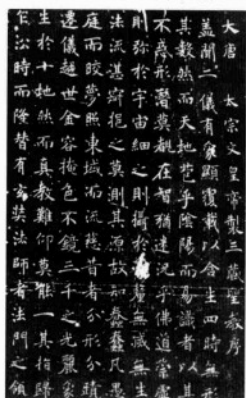 大唐 太宗文皇帝製三藏聖教序
盖聞二儀有象顯覆載以含生四時無形
其數然而天地苞乎陰陽而易識者以其
不惑形潛莫覩在智猶迷況乎佛道崇虛
則弥於宇宙細之則攝於釐無滅無生
法流湛寂挹之莫測其源故知蠢蠢凡愚
庭而皎夢照東域而流慈昔者分形分跡
遷儀越世金容掩色不鏡三千之光麗象
生於十地然而真教難仰莫能一其指歸
乍沿時而隆替有玄奘法師者法門之領